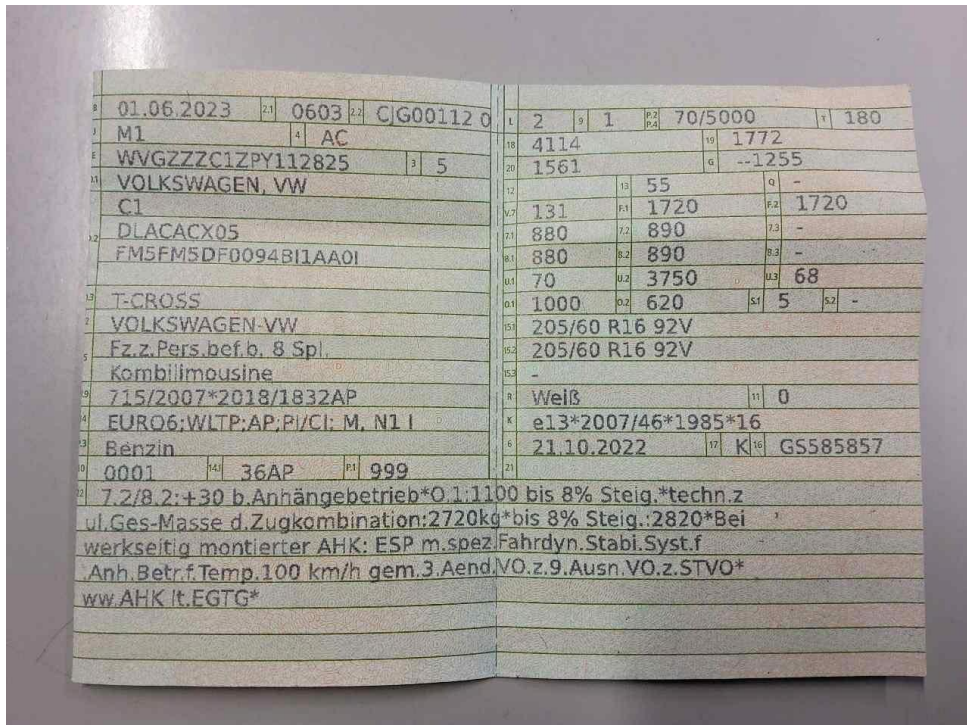 B 01.06.2023 2.1 0603 2.2 CJG00112 0
J M1 4 AC
E WVGZZZC1ZPY112825 3 5
D.1 VOLKSWAGEN, VW
C1
D.2 DLACACX05
FM5FM5DF0094BI1AA0I
D.3 T-CROSS
2 VOLKSWAGEN-VW
5 Fz.z.Pers.bef.b. 8 Spl.
Kombilimousine
V.9 715/2007*2018/1832AP
14 EURO6;WLTP;AP;PI/CI; M, N1 I
P.3 Benzin
10 0001 14.1 36AP P.1 999
L 2 9 1 P.2 P.4 70/5000 T 180
18 4114 19 1772
20 1561 G --1255
12 13 55 Q -
V.7 131 F.1 1720 F.2 1720
7.1 880 7.2 890 7.3 -
8.1 880 8.2 890 8.3 -
U.1 70 U.2 3750 U.3 68
O.1 1000 O.2 620 S.1 5 S.2 -
15.1 205/60 R16 92V
15.2 205/60 R16 92V
15.3 -
R Weiß 11 0
K e13*2007/46*1985*16
6 21.10.2022 17 K 16 GS585857
21
22 7.2/8.2:+30 b.Anhängebetrieb*O.1:1100 bis 8% Steig.*techn.z
ul.Ges-Masse d.Zugkombination:2720kg*bis 8% Steig.:2820*Bei
werkseitig montierter AHK: ESP m.spez.Fahrdyn.Stabi.Syst.f
.Anh.Betr.f.Temp.100 km/h gem.3.Aend.VO.z.9.Ausn.VO.z.STVO*
ww.AHK lt.EGTG*